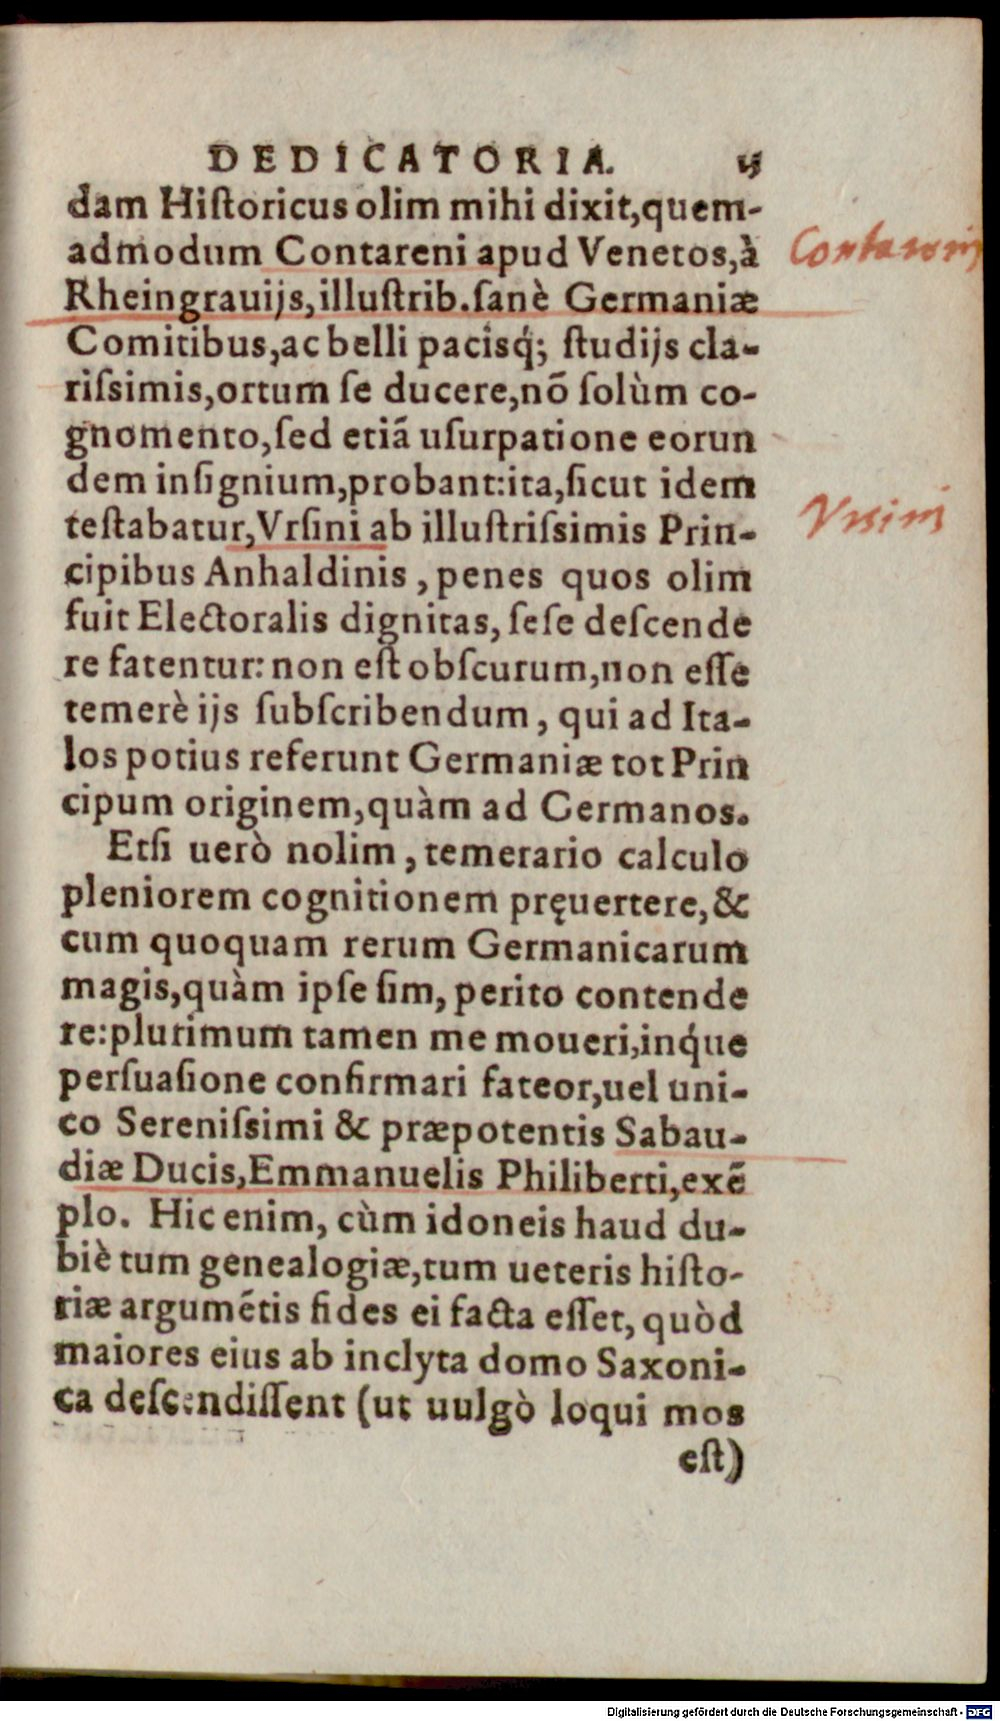 DEDICATORIA.
dam Hiſtoricus olim mihi dixit,quem-
admodum Contareni apud Venetos,à
Contareni
Rheingrauijs,illuſtrib.ſanè Germaniæ
Comitibus,ac belli pacisq́; ſtudijs cla-
riſsimis,ortum ſe ducere,nō ſolùm co-
gnomento,ſed etiā uſurpatione eorun
dem inſignium,probant:ita,ſicut idem
teſtabatur,Vrſini ab illuſtriſsimis Prin-
Vrsini
cipibus Anhaldinis, penes quos olim
fuit Electoralis dignitas, ſeſe deſcende
re fatentur: non eſt obſcurum,non eſſe
temerè ijs ſubſcribendum, qui ad Ita-
los potius referunt Germaniæ tot Prin
cipum originem,quàm ad Germanos.
Etſi uerò nolim, temerario calculo
pleniorem cognitionem pręuertere,&
cum quoquam rerum Germanicarum
magis,quàm ipſe ſim, perito contende
re:plurimum tamen me moueri,inq́ue
perſuaſione confirmari fateor,uel uni-
co Sereniſsimi & præpotentis Sabau-
diæ Ducis,Emmanuelis Philiberti,exē
plo. Hic enim, cùm idoneis haud du-
biè tum genealogiæ,tum ueteris hiſto-
riæ argumētis fides ei facta eſſet, quòd
maiores eius ab inclyta domo Saxoni-
ca deſcendiſſent (ut uulgò loqui mos
eſt)
Digitalisierung gefördert durch die Deutsche Forschungsgemeinschaft - DFG